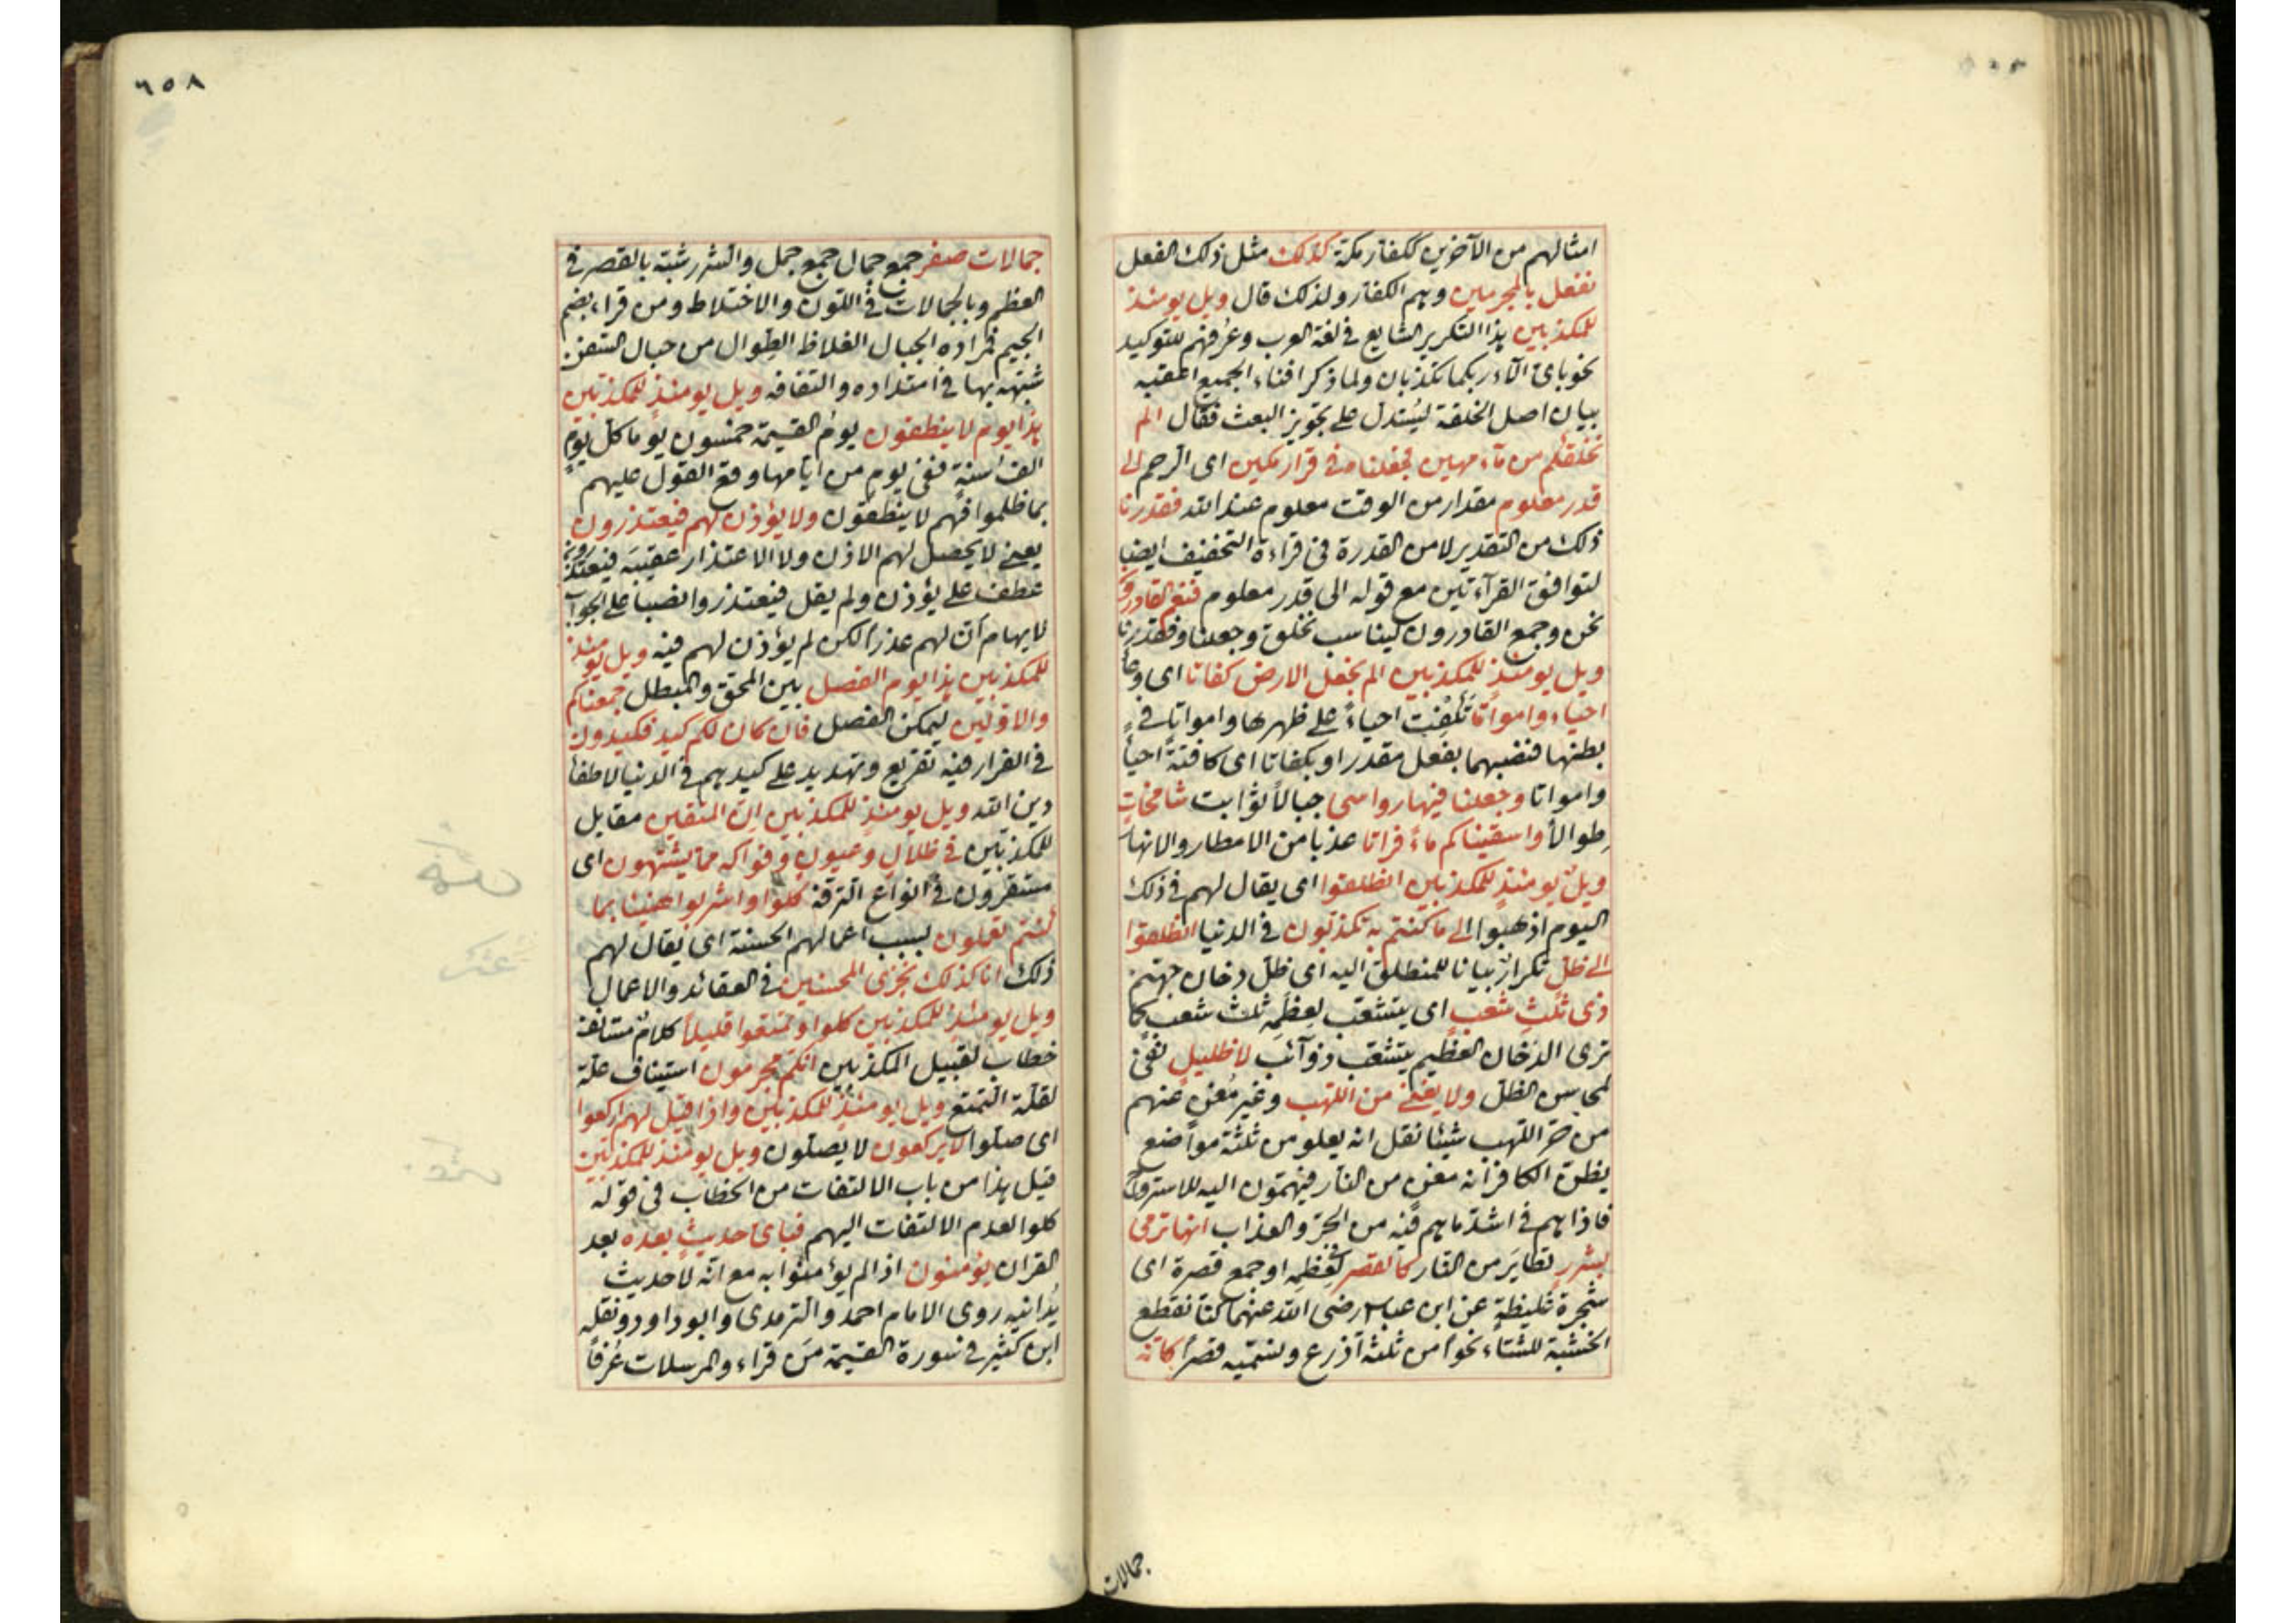 امثالهم من الآخرين ككفار مكة كذلك مثل ذلك الفعل
نفعل بالمجرمين وهم الكفار ولذلك قال ويل يومئذ
للمكذبين هذا التكرير الشايع في لغة العرب وعرفهم للتوكيد
نحو باى آلاء ربكما تكذبان ولما ذكر افناء الجميع اعقبه
بيان اصل الخلقة ليستدل على تجويز البعث فقال الم
نخلقكم من ماء مهين فجعلناه في قرار مكين اى الرحم الى
قدر معلوم مقدار من الوقت معلوم عند الله فقدرنا
ذلك من التقدير لا من القدرة فى قراءة التخفيف ايضا
لتوافق القرآءتين مع قوله الى قدر معلوم فنعم القادرون
نحن وجمع القادرون ليناسب نخلق وجعلنا وفقدرنا
ويل يومئذ للمكذبين الم نجعل الارض كفاتا اى وعاء
احياء وامواتا تكفت احياءً على ظهرها وامواتا في
بطنها فنصبهما بفعل مقدر او بكفاتا اى كافتة احياً
وامواتا وجعلنا فيها رواسى جبالاً ثوابت شامخات
طوالاً واسقيناكم ماءً فراتا عذبا من الامطار والانها
ويل يومئذ للمكذبين انطلقوا اى يقال لهم في ذلك
اليوم اذهبوا الى ما كنتم به تكذبون في الدنيا انطلقوا
الى ظل تكرار بيانا للمنطلق اليه اى ظل دخان جهنم
ذى ثلث شعب اى يتشعب لعظمه ثلث شعب كما
ترى الدخان العظيم يتشعب ذوآئب لا ظليل نفى
لمحاسن الظل ولا يغنى من اللهب وغير مغن عنهم
من حر اللهب شيئا نقل انه يعلو من ثلثة مواضع
يظن الكافر انه مغن من النار فيهمون اليه للاسترواح
فاذا هم في اشد ما هم فيه من الحر والعذاب انها ترمى
بشرر تطاير من النار كالقصر في عظمه او جمع قصرة اى
شجرة غليظة عن ابن عباس رضى الله عنهما كنا نقطع
الخشبة للشتاء نحوا من ثلثة اذرع ونسميه قصرا كانه
جمالات
٦٥٨
جمالات صفر جمع جمال جمع جمل والشرر شبه بالقصر في
العظم وبالجمالات في اللون والاختلاط ومن قراء بضم
الجيم فمراده الحبال الغلاظ الطوال من حبال السفن
شبهه بها في امتداده والتفافه ويل يومئذ للمكذبين
هذا يوم لا ينطقون يوم القيمة خمسون يوما كل يوم
الف سنة ففى يوم من ايامها وقع القول عليهم
بما ظلموا فهم لا ينطقون ولا يؤذن لهم فيعتذرون
يعنى لا يحصل لهم الاذن ولا الاعتذار عقيبه فيعتذرون
عطف على يؤذن ولم يقل فيعتذروا نصبا على الجواب
لايهام ان لهم عذرا لكن لم يؤذن لهم فيه ويل يومئذ
للمكذبين هذا يوم الفصل بين المحق والمبطل جمعناكم
والاولين ليمكن الفصل فان كان لكم كيد فكيدون
في الفرار فيه تقريع وتهديد على كيدهم في الدنيا لاطفاء
دين الله ويل يومئذ للمكذبين ان المتقين مقابل
للمكذبين في ظلال وعيون وفواكه مما يشتهون اى
مستقرون في انواع الترفه كلوا واشربوا هنيئا بما
كنتم تعملون بسبب اعمالهم الحسنة اى يقال لهم
ذلك انا كذلك نجزى المحسنين في العقائد والاعمال
ويل يومئذ للمكذبين كلوا وتمتعوا قليلاً كلام مستانف
خطاب لقبيل المكذبين انكم مجرمون استيناف علة
لقلة التمتع ويل يومئذ للمكذبين واذا قيل لهم اركعوا
اى صلوا لا يركعون لا يصلون ويل يومئذ للمكذبين
قيل هذا من باب الالتفات من الخطاب فى قوله
كلوا لعدم الالتفات اليهم فباى حديث بعده بعد
القران يؤمنون اذا لم يؤمنوا به مع انه لا حديث
يدانيه روى الامام احمد والترمذى وابو داود ونقله
ابن كثير في سورة القيمة من قراء والمرسلات عرفاً